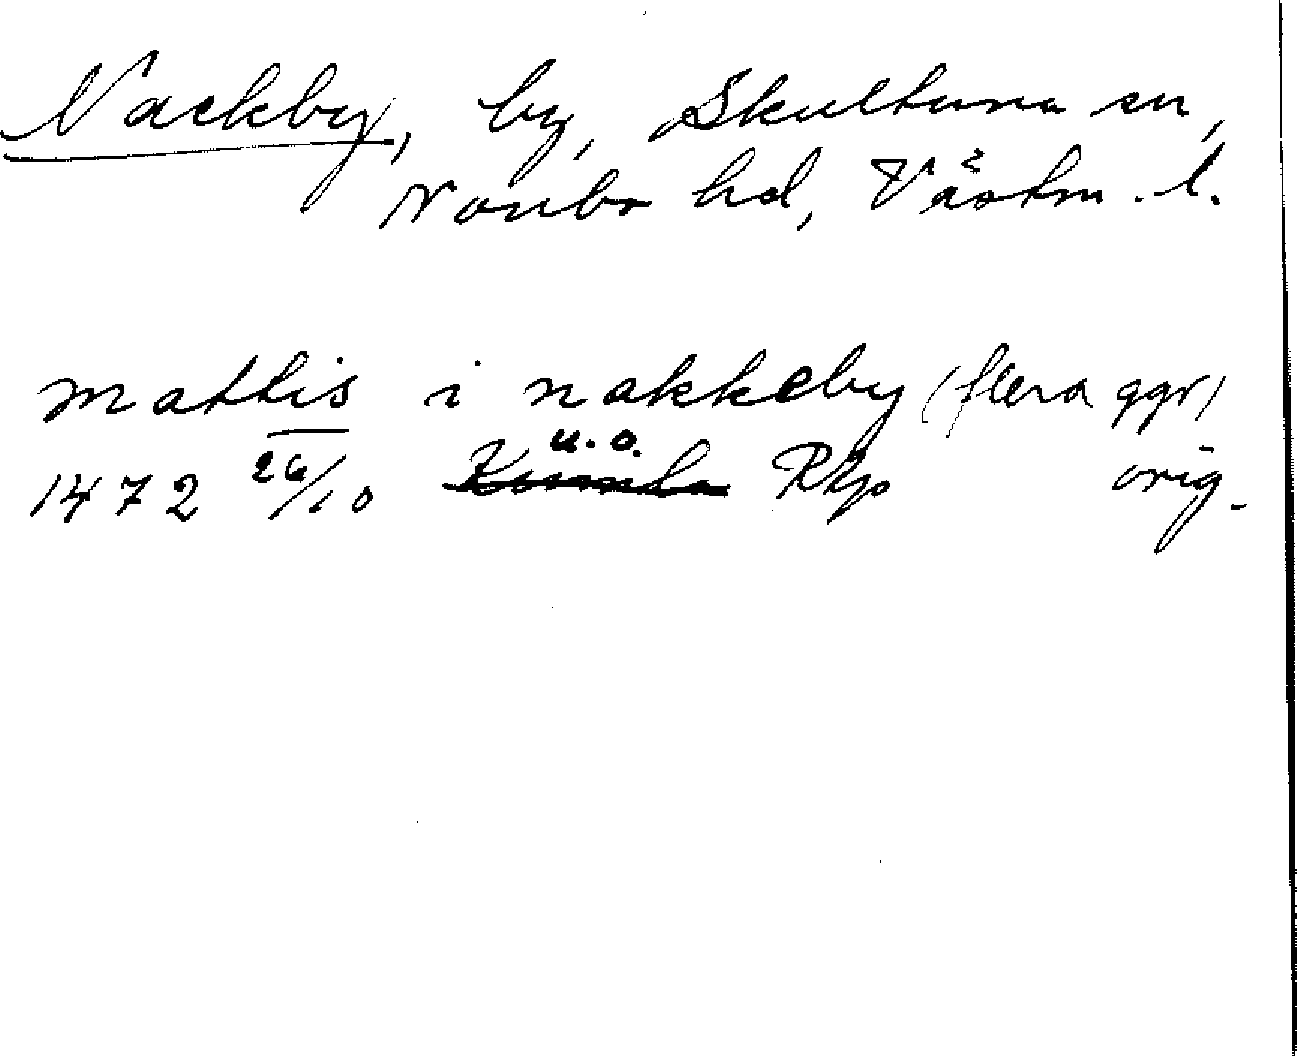 Nackby, by, Skultuna sn,
Norrbo hd, Västm. l.
mattis i nakkeby (flera ggr)
u. o.
1472 26/10 Kumla Rkp orig.